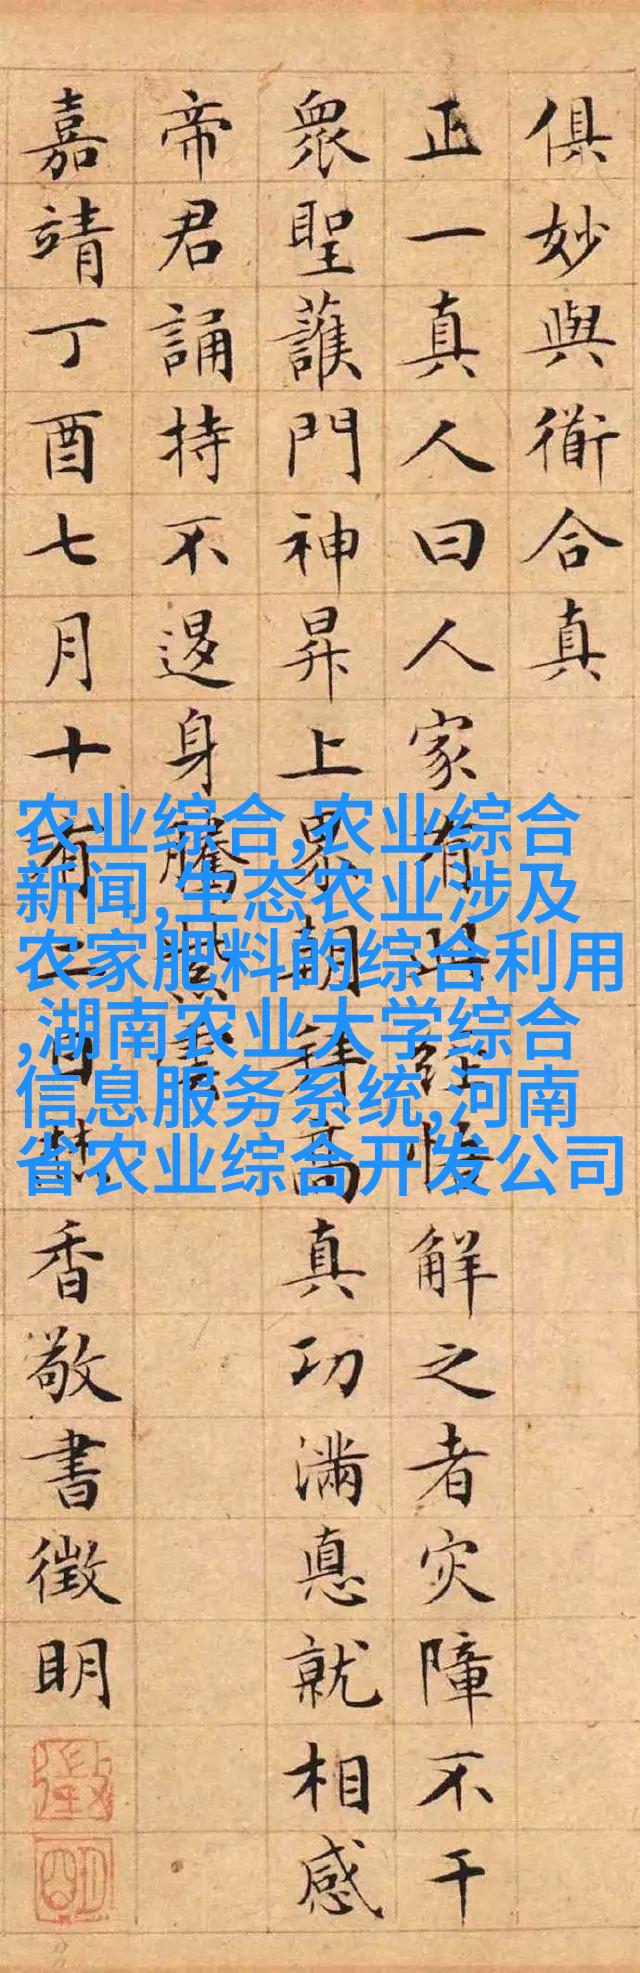 俱妙與衜合真
正一真人曰人家有此經悟解之者灾障不干
衆聖護門神昇上界朝拜高真功滿悳就相感
帝君誦持不退身騰紫雲
嘉靖丁酉七月十有二日焚香敬書徵明
徵
明
农业综合,农业综合
新闻,生态农业涉及
农家肥料的综合利用
,湖南农业大学综合
信息服务系统,河南
省农业综合开发公司